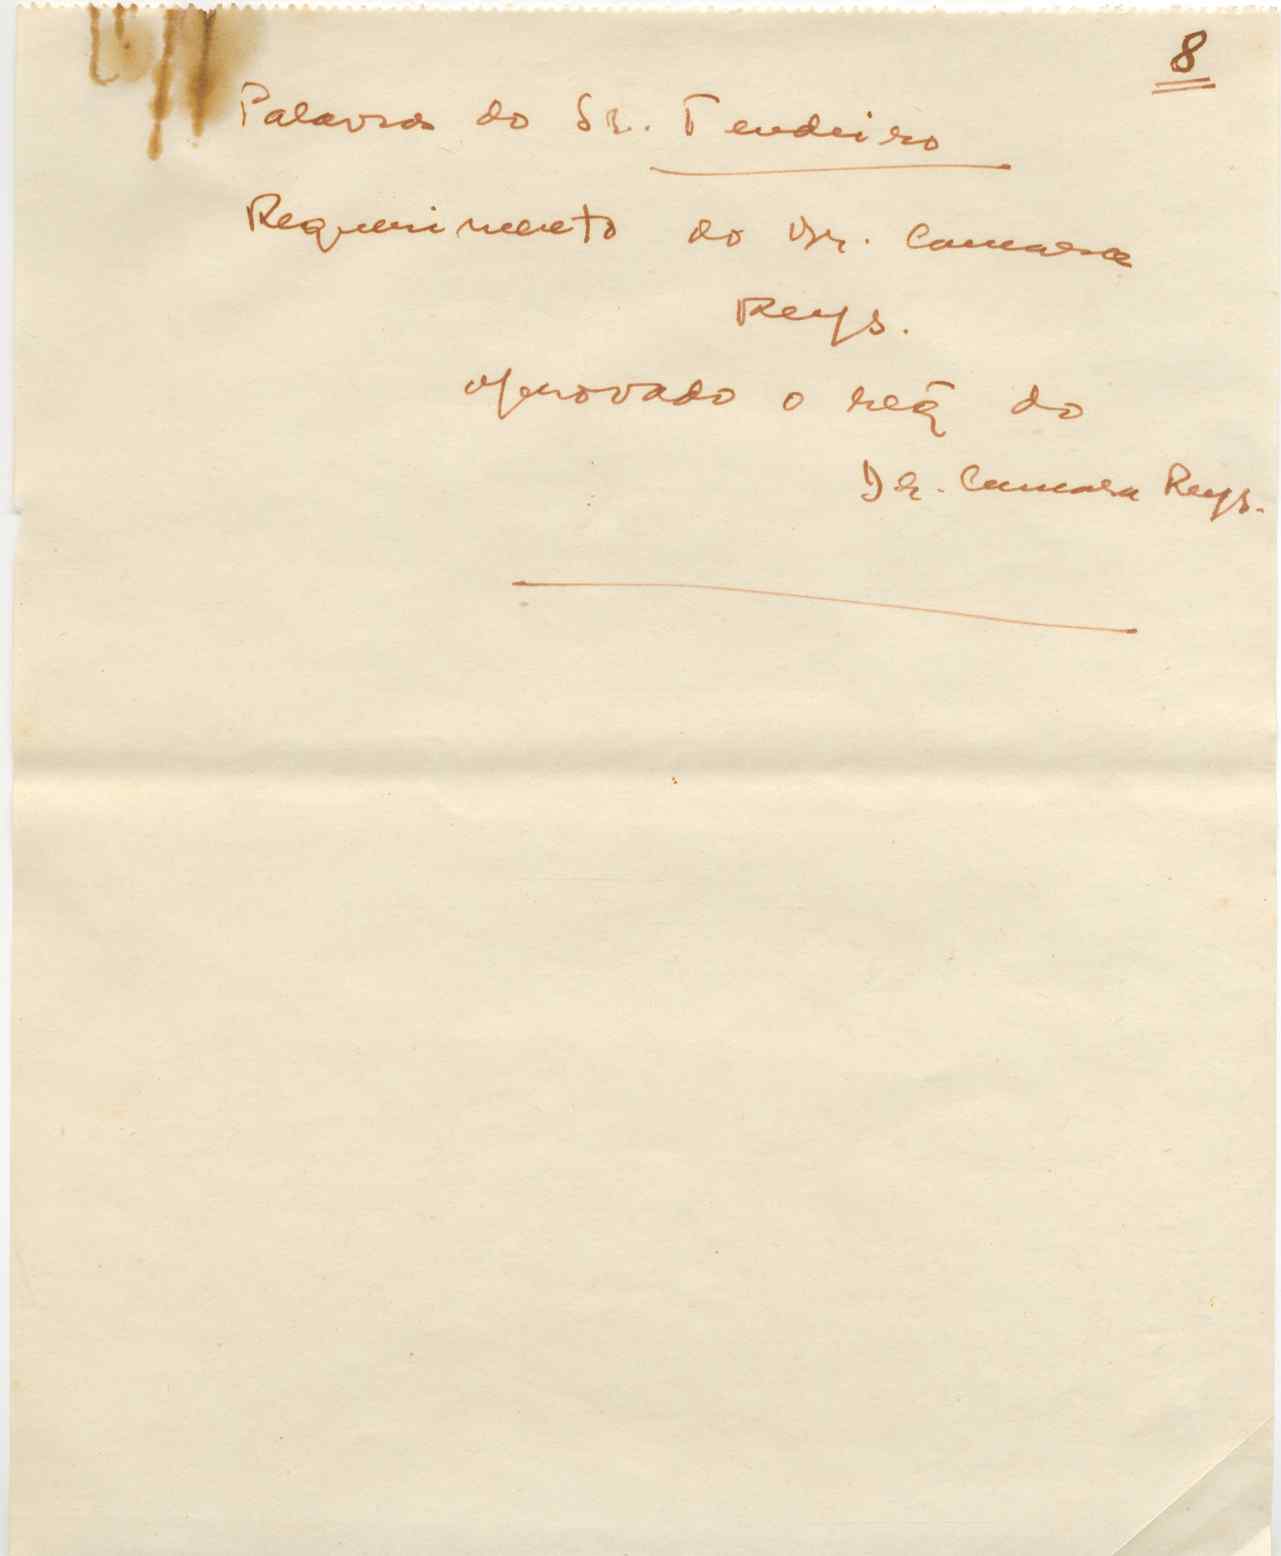 8
Palavra do Sr. Tendeiro
Requerimento do Dr. Camara
Reys.
Aprovado o req do
Dr. Camara Reys.